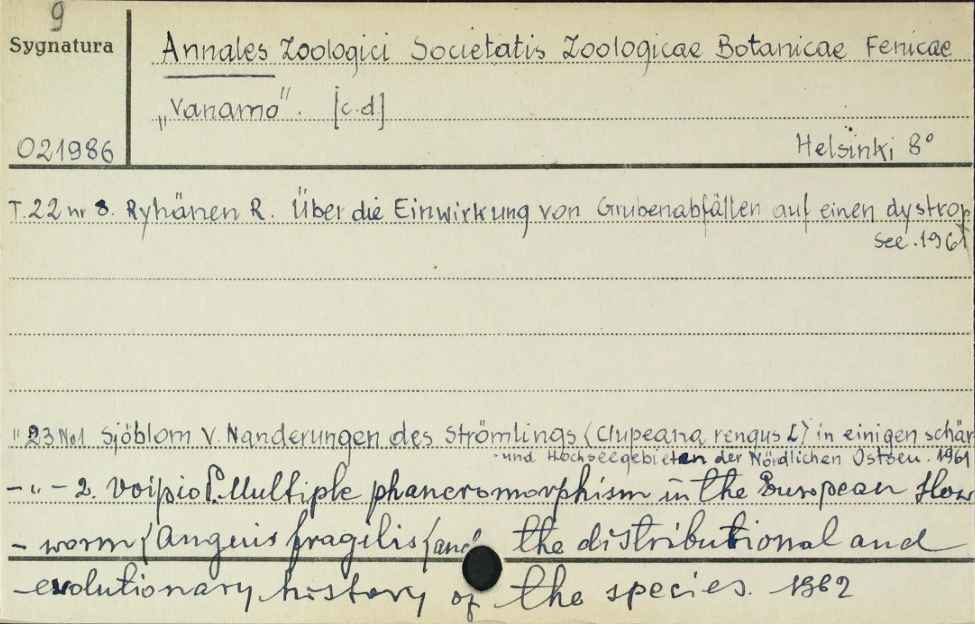 9
Sygnatura
Annales Zoologici Societatis Zoologicae Botanicae Fenicae
„Vanamo". [c.d]
021986
Helsinki 8°
T. 22 nr 8. Ryhänen R. Über die Einwirkung von Grubenabfällen auf einen dystrop
see. 1961
" 23 No1 Sjöblom V. Nanderungen des Strömlings (Clupeana rengus L) in einigen schär
- und Hochseegebieten der Nördlichen Ostseu. 1961
- " - 2. Voipio P. Multiple phaneromorphism in the European slow
- worm (Anguis fragilis) and the distributional and
evolutionary history of the species. 1962